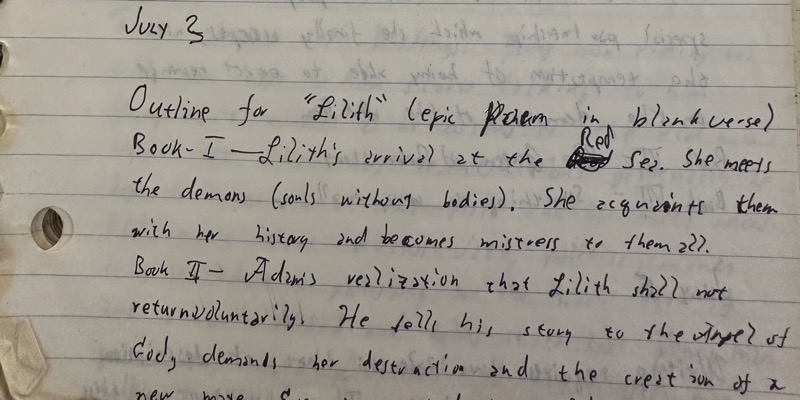 July 3
Outline for "Lilith" (epic poem in blank verse)
Book-I — Lilith's arrival at the Red Sea. She meets
the demons (souls without bodies). She acquaints them
with her history and becomes mistress to them all.
Book II - Adam's realization that Lilith shall not
return voluntarily. He tells his story to the Angel of
God, demands her destruction and the creation of a
new